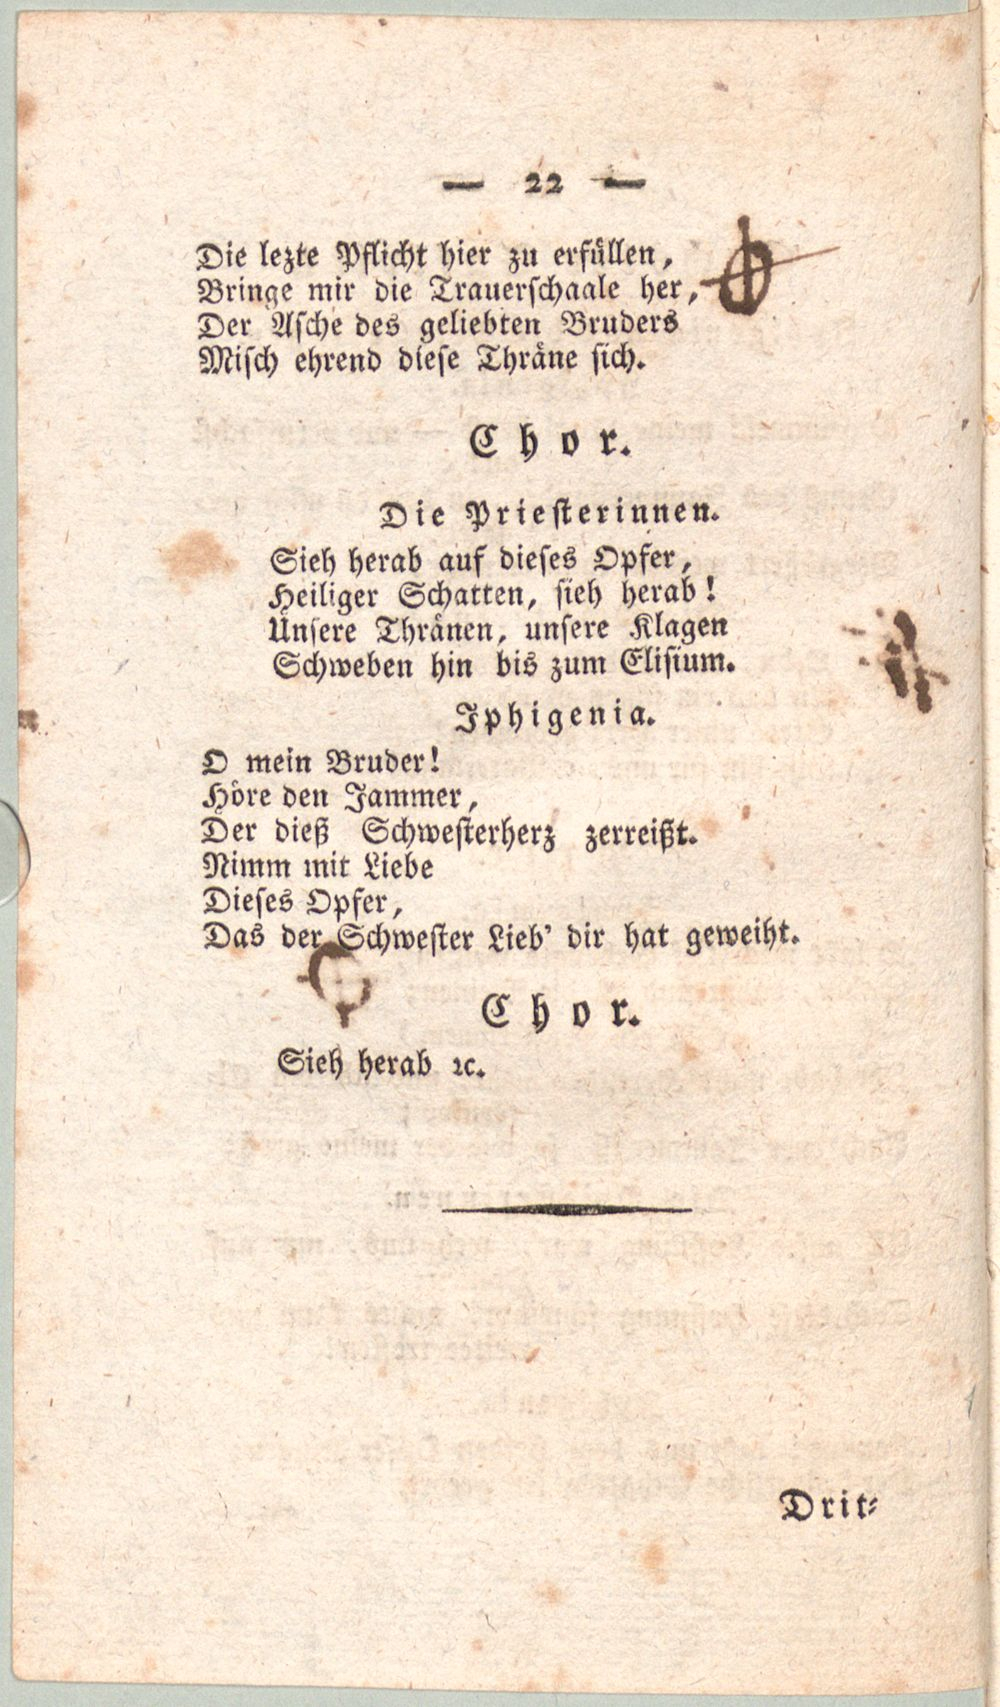 — 22 —
Die lezte Pflicht hier zu erfüllen,
Bringe mir die Trauerschaale her,
Der Asche des geliebten Bruders
Misch ehrend diese Thräne sich.
Chor.
Die Priesterinnen.
Sieh herab auf dieses Opfer,
Heiliger Schatten, sieh herab!
Unsere Thränen, unsere Klagen
Schweben hin bis zum Elisium.
Iphigenia.
O mein Bruder!
Höre den Jammer,
Der dieß Schwesterherz zerreißt.
Nimm mit Liebe
Dieses Opfer,
Das der Schwester Lieb' dir hat geweiht.
Chor.
Sieh herab ꝛc.
Drit⸗